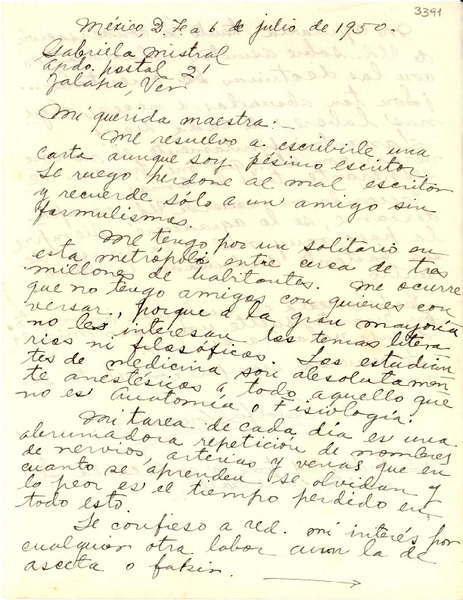 3391
México D. F. a 6 de julio de 1950.
Gabriella Mistral
Apdo. postal 21
Jalapa, Ver.
Mi querida maestra:-
Me resuelvo a escribirle una
carta aunque soy pésimo escritor
Le ruego perdone al mal escritor
y recuerde sólo a un amigo sin
formulismos.
Me tengo por un solitario en
esta metrópoli entre cerca de tres
millones de habitantes. Me ocurre
que no tengo amigos con quienes con
versar, porque a la gran mayoría
no les interesan los temas litera
rios ni filosóficos. Los estudian
tes de medicina son absolutamen
te anestésicos a todo aquello que
no es Anatomía o Fisiología.
Mi tarea de cada día es una
abrumadora repetición de nombres
de nervios, arterias y venas que en
cuanto se aprenden se olvidan y
lo peor es el tiempo perdido en
todo esto.
Le confieso a Ud. mi interés por
cualquier otra labor aun la de
asceta o fakir.